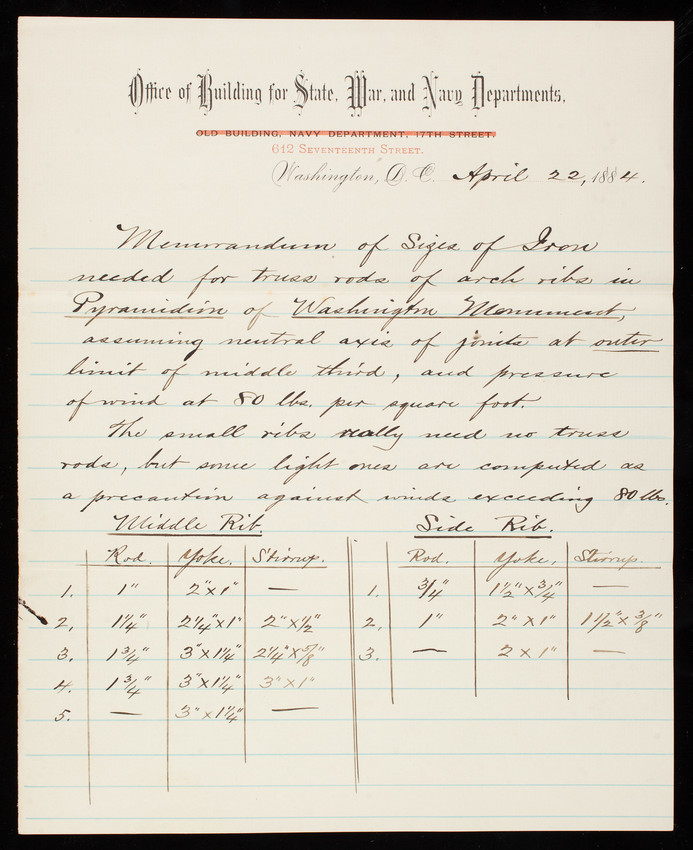 Office of Building for State, War, and Navy Departments.
OLD BUILDING, NAVY DEPARTMENT, 17TH STREET.
612 SEVENTEENTH STREET.
Washington, D. C. April 22, 1884.
Memorandum of Sizes of Iron
needed for truss rods of arch ribs in
Pyramidion of Washington Monument,
assuming neutral axis of joints at outer
limit of middle third, and pressure
of wind at 80 lbs. per square foot.
The small ribs really need no truss
rods, but some light ones are computed as
a precaution against winds exceeding 80 lbs.
Middle Rib. Side Rib.
Rod. Yoke. Stirrup. Rod. Yoke. Stirrup.
1. 1" 2"x1" — 1. 3/4" 1 1/2"x3/4" —
2. 1 1/4" 2 1/4"x1" 2"x1/2" 2. 1" 2"x1" 1 1/2"x3/8"
3. 1 3/4" 3"x1 1/4" 2 1/4"x5/8" 3. — 2x1" —
4. 1 3/4" 3"x1 1/4" 3"x1"
5. — 3"x1 1/4" —